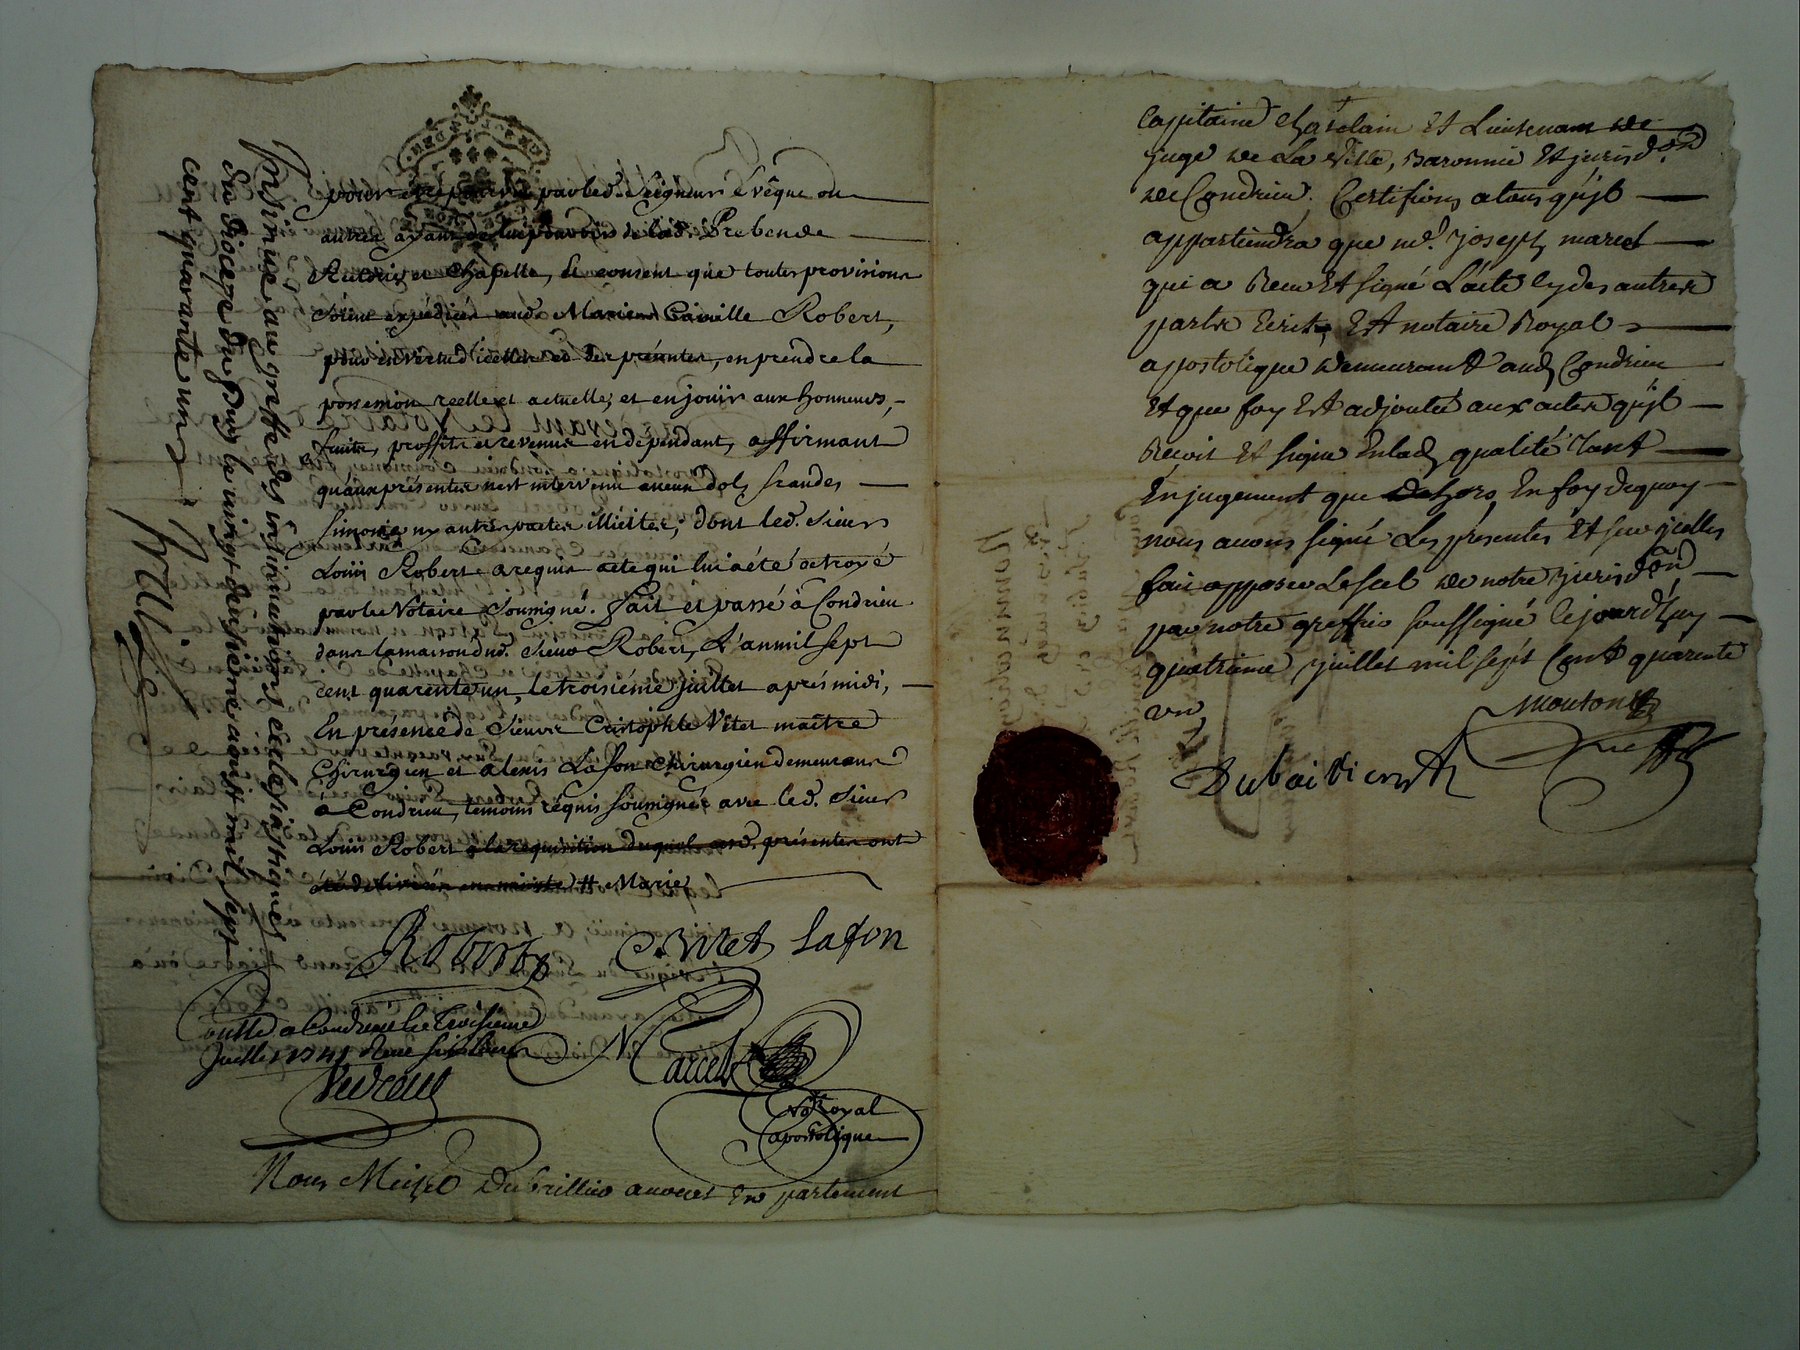 pour être pourvû par led. Seigneur Evêque ou
autres ayant de lui pouvoir de lad. Prebende
Rectorie et Chapelle, et consent que toutes provisions
soient expédiées aud. Marien Camille Robert,
pour en vertu d'icelles et des présentes, en prendre la
possession reelle et actuelle, et en joüir aux honneurs,
fruits, proffits et revenus en dépendant, affirmant
qu'aux présentes n'est intervenu aucun dol, fraudes
simonie ny autres pactes illicites; dont led. Sieur
Loüis Robert a requis acte qui lui a été octroyé
par le Notaire soussigné. Fait et passé à Condrieu
dans la maison dud. Sieur Robert, L'an mil sept
cent quarente un, le troisiéme Juillet aprés midi,
En présence de Sieurs Cristophle Vitet maître
Chirurgien et Alexis Lafon chirurgien demeurans
à Condrieu, temoins réquis soussignés avec led. Sieur
Loüis Robert à la requisition duquel ces présentes ont
été delivrées en minute # Marie
Robert C. Vitet Lafon
Conttlé a Condrieu le troisieme
Juillet 1741 Receu six livres
Marcel
No. Royal
apostolique
Nous Meire avocat En parlement
Insinué au greffe des insinuations ecclesiastiques
du diocèze du Puy le vingt deuxième aoust mil sept
cent quarante un
Capitaine Chatelain Et Lieutenant de
juge de La Ville, Baronnie Et jurisd.on
de Condrieu. Certifions a tous qu'jl
appartiendra que me. Joseph marcel
qui a Receu Et signé L'acte cy des autres
parts Ecrit, Est notaire Royal
apostolique demeurant aud. Condrieu
Et que foy Est adjoutée aux actes qu'jl
Reçoit Et signe En lad. qualité Tant
En jugement que dehors, En foy de quoy
nous avons signé Les presentes Et sur jcelles
fait apposer Le scel de notre jurisdon
par notre greffier soussigné ce jourd'huy
quatrieme juillet mil sept Cent quarente
un
mouton
greff